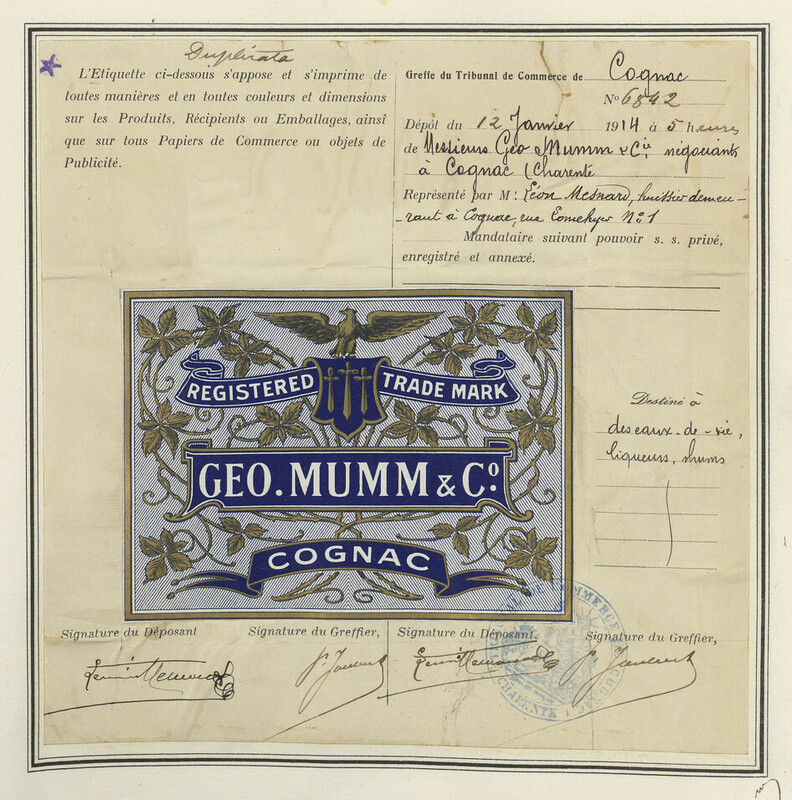 Duplicata
L'Etiquette ci-dessous s'appose et s'imprime de
toutes manières et en toutes couleurs et dimensions
sur les Produits, Récipients ou Emballages, ainsi
que sur tous Papiers de Commerce ou objets de
Publicité.
Greffe du Tribunal de Commerce de Cognac
No 6842
Dépôt du 12 Janvier 1914 à 5 heures
de Messieurs Geo Mumm & Cie, négociants
à Cognac (Charente
Représenté par M: Léon Mesnard, huissier demeu-
-rant à Cognac, rue No 1
Mandataire suivant pouvoir s. s. privé,
enregistré et annexé.
REGISTERED TRADE MARK
GEO. MUMM & Co.
COGNAC
Destiné à
des eaux-de-vie,
liqueurs, rhums
Signature du Déposant Signature du Greffier, Signature du Déposant. Signature du Greffier,